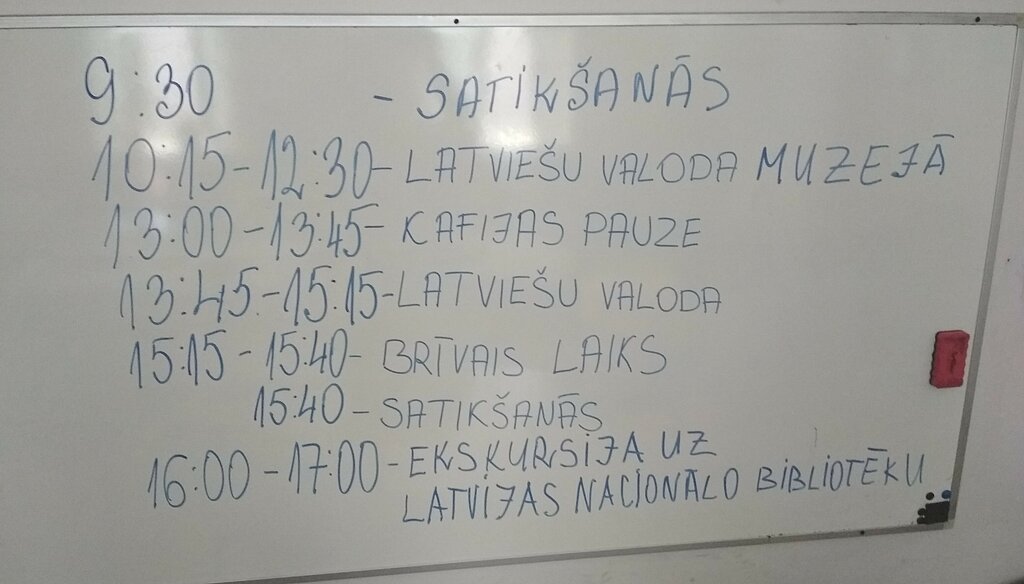 9:30 - SATIKŠANĀS
10:15-12:30- LATVIEŠU VALODA MUZEJĀ
13:00-13:45- KAFIJAS PAUZE
13:45-15:15-LATVIEŠU VALODA
15:15-15:40- BRĪVAIS LAIKS
15:40-SATIKŠANĀS
16:00-17:00-EKSKURSIJA UZ
LATVIJAS NACIONĀLO BIBLIOTĒKU